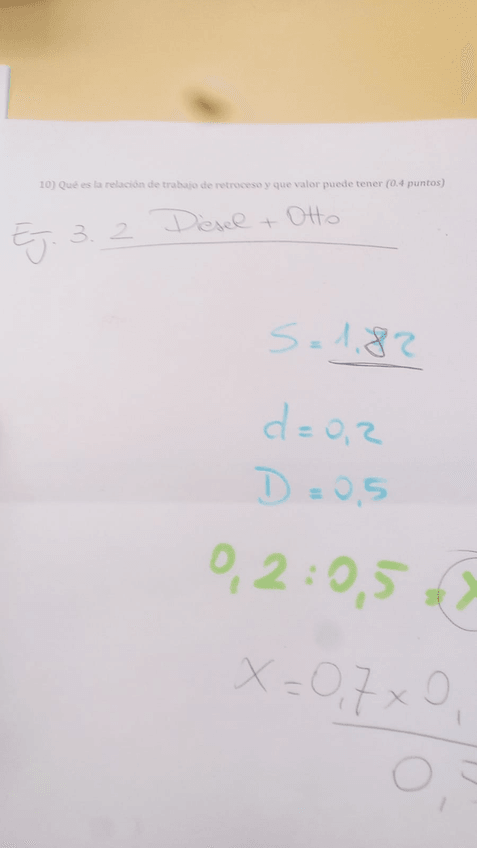 10) Qué es la relación de trabajo de retroceso y que valor puede tener (0.4 puntos)
Ej. 3. 2 Diesel + Otto
S = 1.82
d = 0,2
D = 0,5
0,2 : 0,5 =
X = 0,7 x 0,
0,